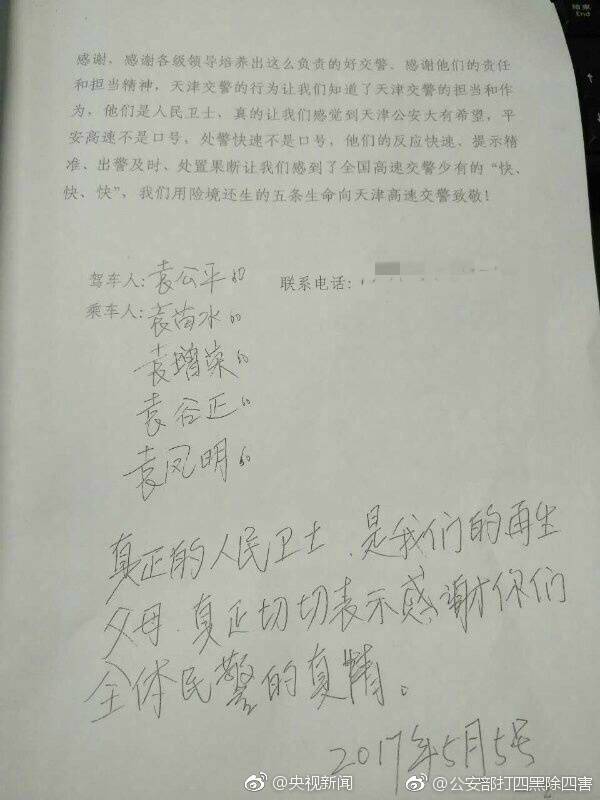 感谢，感谢各级领导培养出这么负责的好交警、感谢他们的责任
和担当精神，天津交警的行为让我们知道了天津交警的担当和作
为，他们是人民卫士，真的让我们感觉到天津公安大有希望，平
安高速不是口号，处警快速不是口号，他们的反应快速、提示精
准、出警及时、处置果断让我们感到了全国高速交警少有的“快、
快、快”，我们用险境还生的五条生命向天津高速交警致敬！
驾车人：袁公平 联系电话：
乘车人：袁苗水
袁增荣
袁谷正
袁凤明
真正的人民卫士、是我们的再生
父母、真正切切表示感谢你们
全体民警的真情。
2017年5月5号
@央视新闻 @公安部打四黑除四害